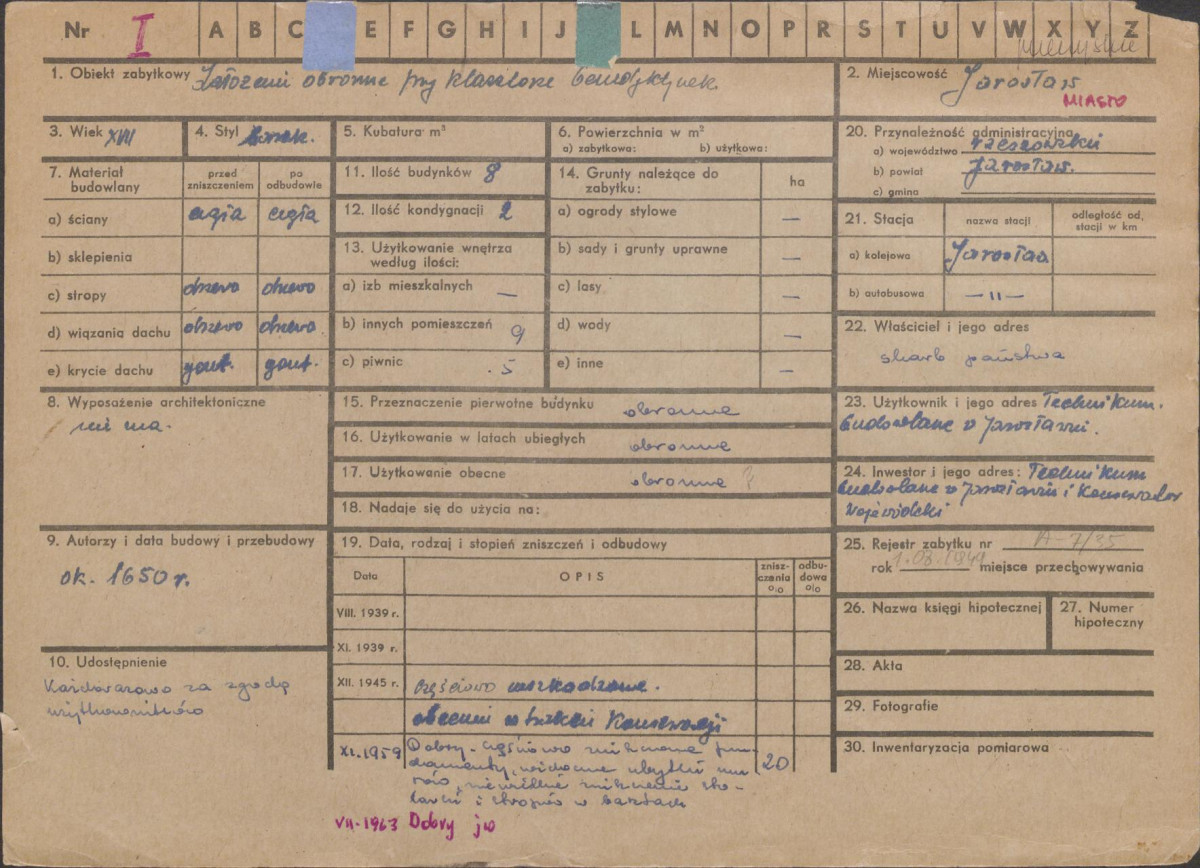 Nr I A B C E F G H I J L M N O P R S T U V W X Y Z
1. Obiekt zabytkowy Założenie obronne przy klasztorze benedyktynek
2. Miejscowość Jarosław
MIASTO
3. Wiek XVII
4. Styl barok.
5. Kubatura m³
6. Powierzchnia w m²
a) zabytkowa: b) użytkowa:
20. Przynależność administracyjna
a) województwo rzeszowskie
b) powiat Jarosław.
c) gmina
7. Materiał budowlany
przed zniszczeniem
po odbudowie
a) ściany cegła cegła
b) sklepienia
c) stropy drzewo drzewo
d) wiązania dachu drzewo drzewo
e) krycie dachu gont. gont.
11. Ilość budynków 8
12. Ilość kondygnacji 2
13. Użytkowanie wnętrza
według ilości:
a) izb mieszkalnych —
b) innych pomieszczeń 9
c) piwnic 5
14. Grunty należące do
zabytku: ha
a) ogrody stylowe —
b) sady i grunty uprawne —
c) lasy —
d) wody —
e) inne —
21. Stacja
nazwa stacji
odległość od,
stacji w km
a) kolejowa Jarosław
b) autobusowa —"—
22. Właściciel i jego adres
skarb państwa
8. Wyposażenie architektoniczne
nie ma.
15. Przeznaczenie pierwotne budynku obronne
16. Użytkowanie w latach ubiegłych obronne
17. Użytkowanie obecne obronne ?
18. Nadaje się do użycia na:
23. Użytkownik i jego adres Technikum.
budowlane w Jarosławiu.
24. Inwestor i jego adres: Technikum
budowlane w Jarosławiu i Konserwator
Wojewódzki
9. Autorzy i data budowy i przebudowy
ok. 1650 r.
19. Data, rodzaj i stopień zniszczeń i odbudowy
Data
OPIS
znisz-
czenia
o/o
odbu-
dowa
o/o
VIII. 1939 r.
XI. 1939 r.
XII. 1945 r. częściowo uszkodzone.
obecnie w trakcie Konserwacji
XI.1959 Dobry - częściowo zniszczone fun-
damenty, widoczne ubytki mu-
rów, niewielkie zniszczenia sto-
larki i stropów w basztach
20
VII-1963 Dobry jw
25. Rejestr zabytku nr A-7/35
rok 1.08.1949 miejsce przechowywania
26. Nazwa księgi hipotecznej
27. Numer
hipoteczny
10. Udostępnienie
Każdorazowo za zgodą
użytkowników
28. Akta
29. Fotografie
30. Inwentaryzacja pomiarowa